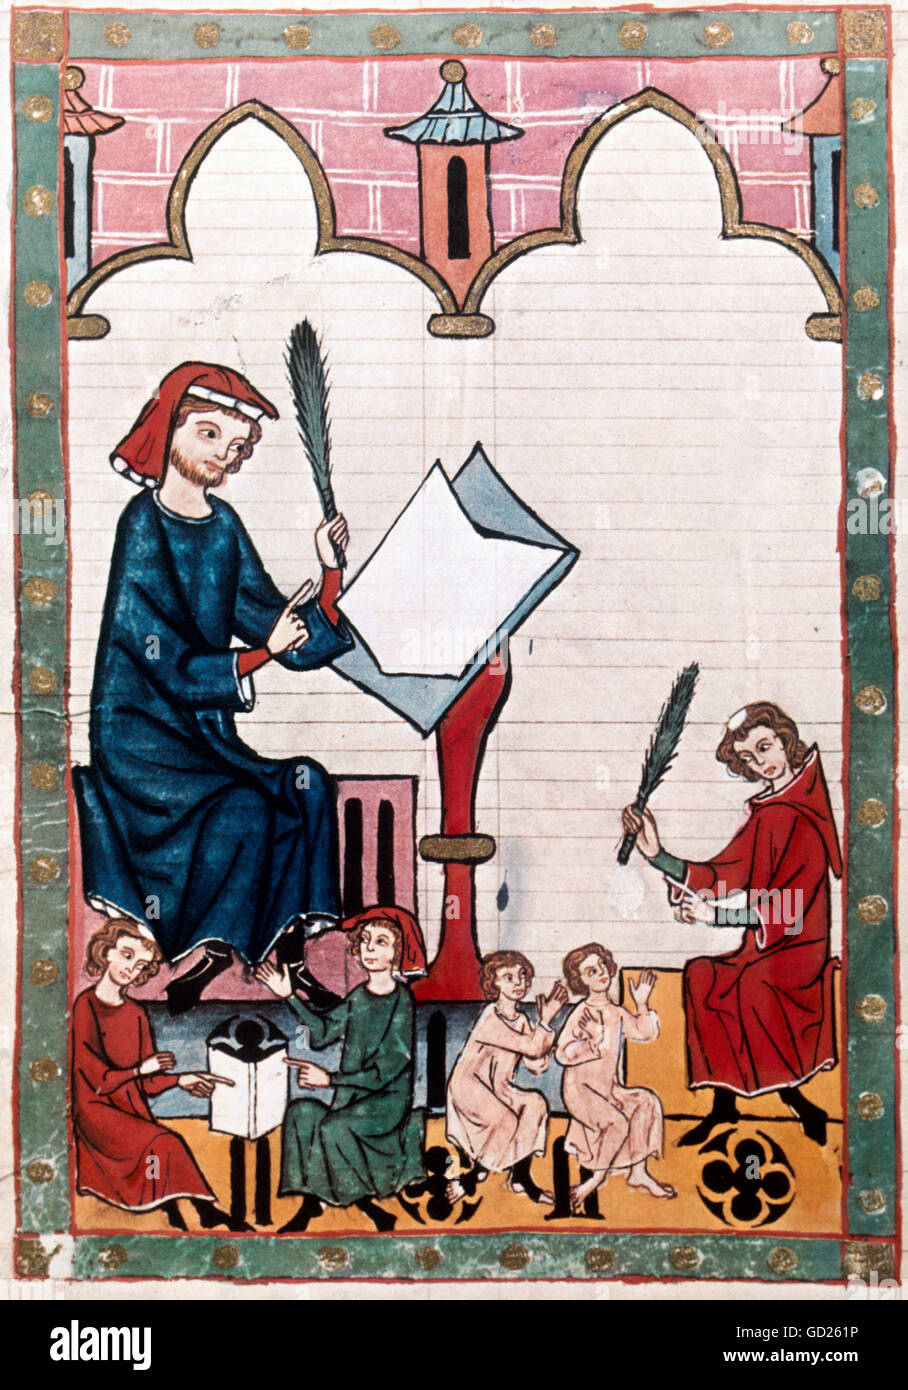 alamy
Image ID: GD261P
www.alamy.com